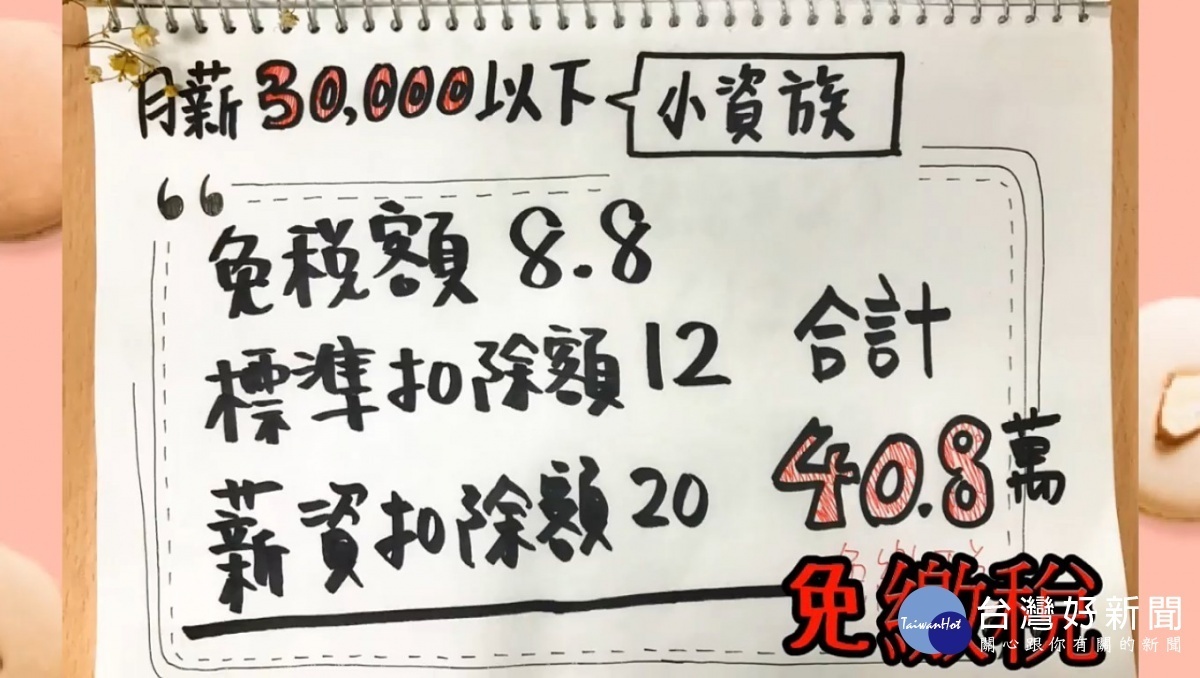 月薪30,000以下
小資族
免稅額 8.8
標準扣除額 12
薪資扣除額 20
合計
40.8萬
免繳稅
TaiwanHot
台灣好新聞
關心跟你有關的新聞